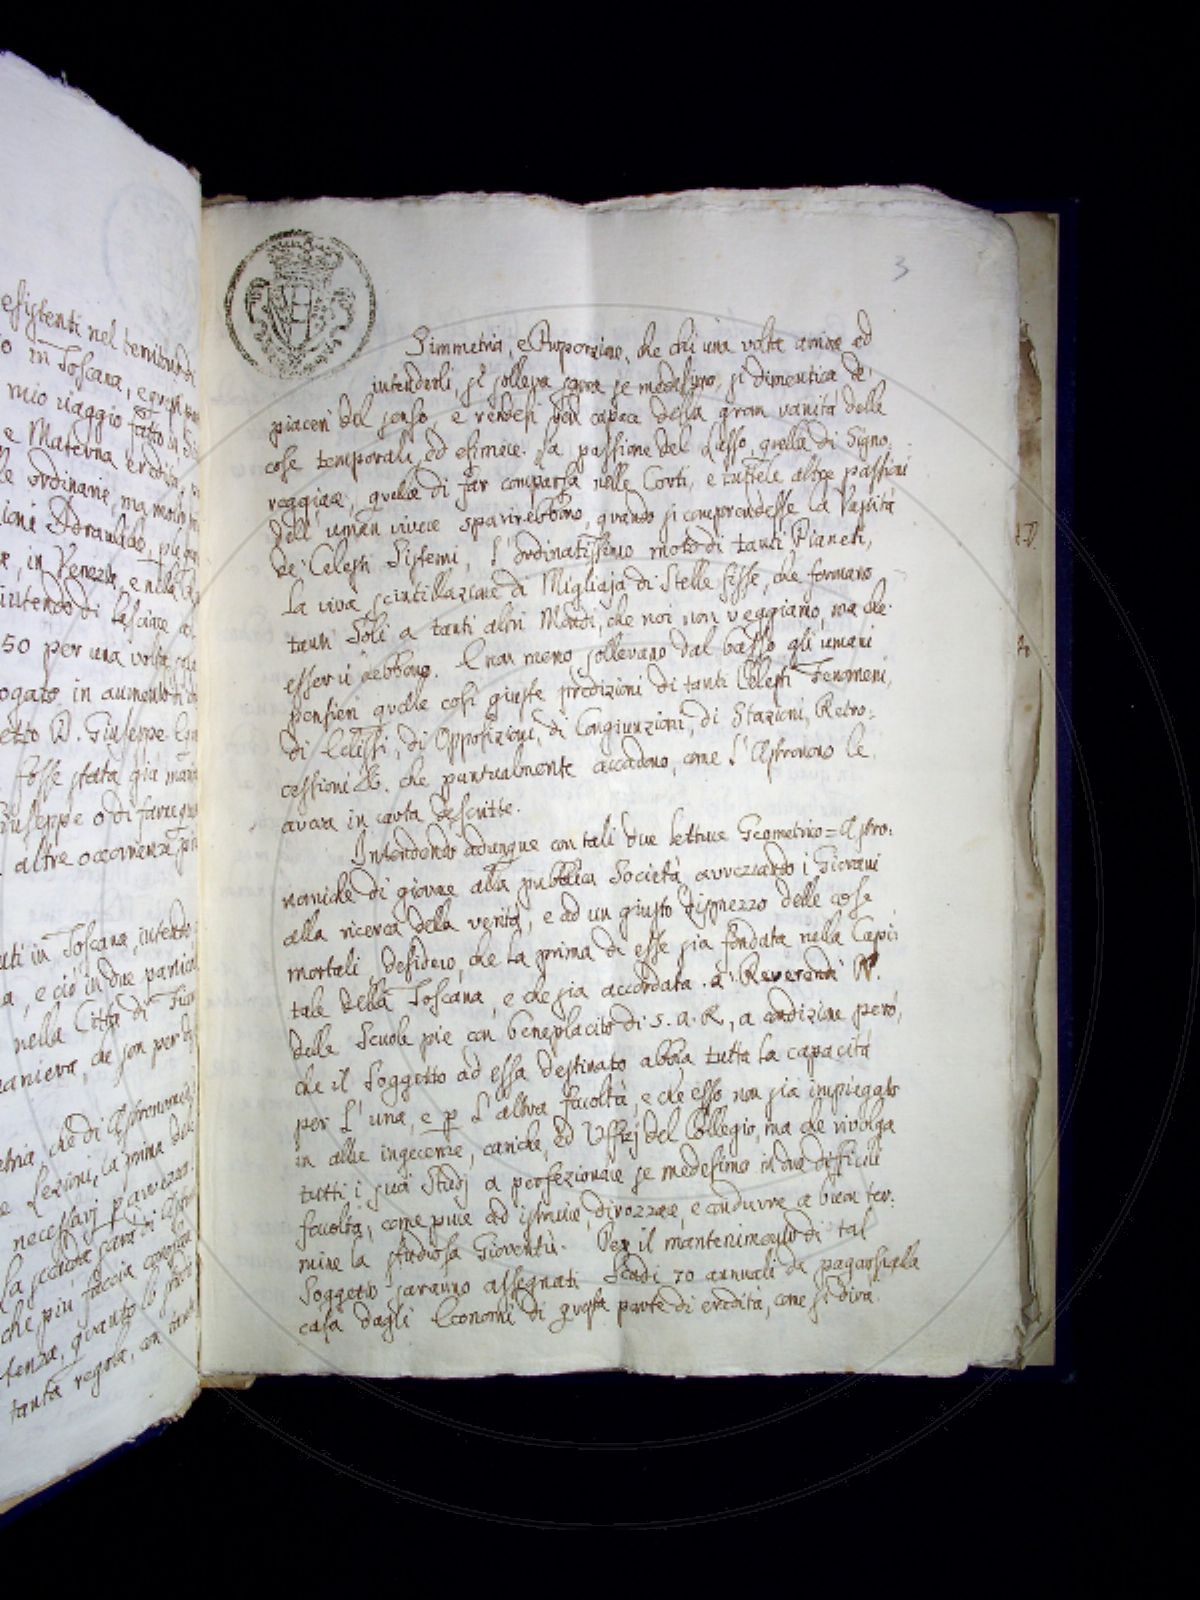 esistenti nel territorio di
o in Toscana, e questi
mio viaggio fatto in
e Materna eredità,
le ordinarie, ma molto
ioni
r, in Venezia, e nella
intendo di lasciare a
50 per una volta sola
ogato in aumento di
etto D. Giuseppe
fosse stata già
Giuseppe o di farne
altre occorrenze,
uti in Toscana, intendo
a, e ciò in due
nella Città di
maniera, che son per
etria, che di Astronomia
e Lezioni, la prima delle
necessarj p avvezza
La seconda sarà di
che più faccia
tenza, quanto lo
tanta regola, con
3
Simmetria, e Proporzione, che chi una volta arriva ad
intenderli, si solleva sopra se medesimo, si dimentica de'
piaceri del senso, e rendesi più capace della gran vanità delle
cose temporali, ed efimere. La passione del Lusso, quella di Signo,
reggiare, quella di far comparsa nelle Corti, e tutte le altre passioni
dell' uman vivere sparirebbono, quando si comprendesse la Vastità
de' Celesti Sistemi, l' ordinatissimo moto di tanti Pianeti,
la viva scintillazione di Migliaja di Stelle fisse, che formano
tanti Soli a tanti altri Mondi, che noi non veggiamo, ma che
esser vi debbono. E non meno sollevano dal basso gli umani
pensieri quelle così giuste predizioni di tanti Celesti Fenomeni,
di Eclissi, di Opposizioni, di Congiunzioni, di Stazioni, Retro=
cessioni &c. che puntualmente accadono, come l' Astronomo le
aveva in carta descritte.
Intendendo adunque con tali due letture Geometrico=Astro:
nomiche di giovare alla pubblica Società avvezzando i Giovani
alla ricerca della verità, e ad un giusto disprezzo delle cose
mortali, desidero, che la prima di esse sia fondata nella Capi:
tale della Toscana, e che sia accordata a' Reverendi PP.
delle Scuole pie con beneplacito di S. A. R., a condizione però,
che il Soggetto ad essa destinato abbia tutta la capacità
per l' una, e p l' altra facoltà, e che esso non sia impiegato
in altre ingerenze, cariche, ed Uffizj del Collegio, ma che rivolga
tutti i suoi Studj a perfezionare se medesimo in due difficili
facoltà, come pure ad istruire, dirozzare, e condurre a buon ter:
mine la studiosa Gioventù. Per il mantenimento di tal
Soggetto saranno assegnati Scudi 70 annuali da pagarsi alla
casa dagli Economi di questa parte di eredità, come si dirà.